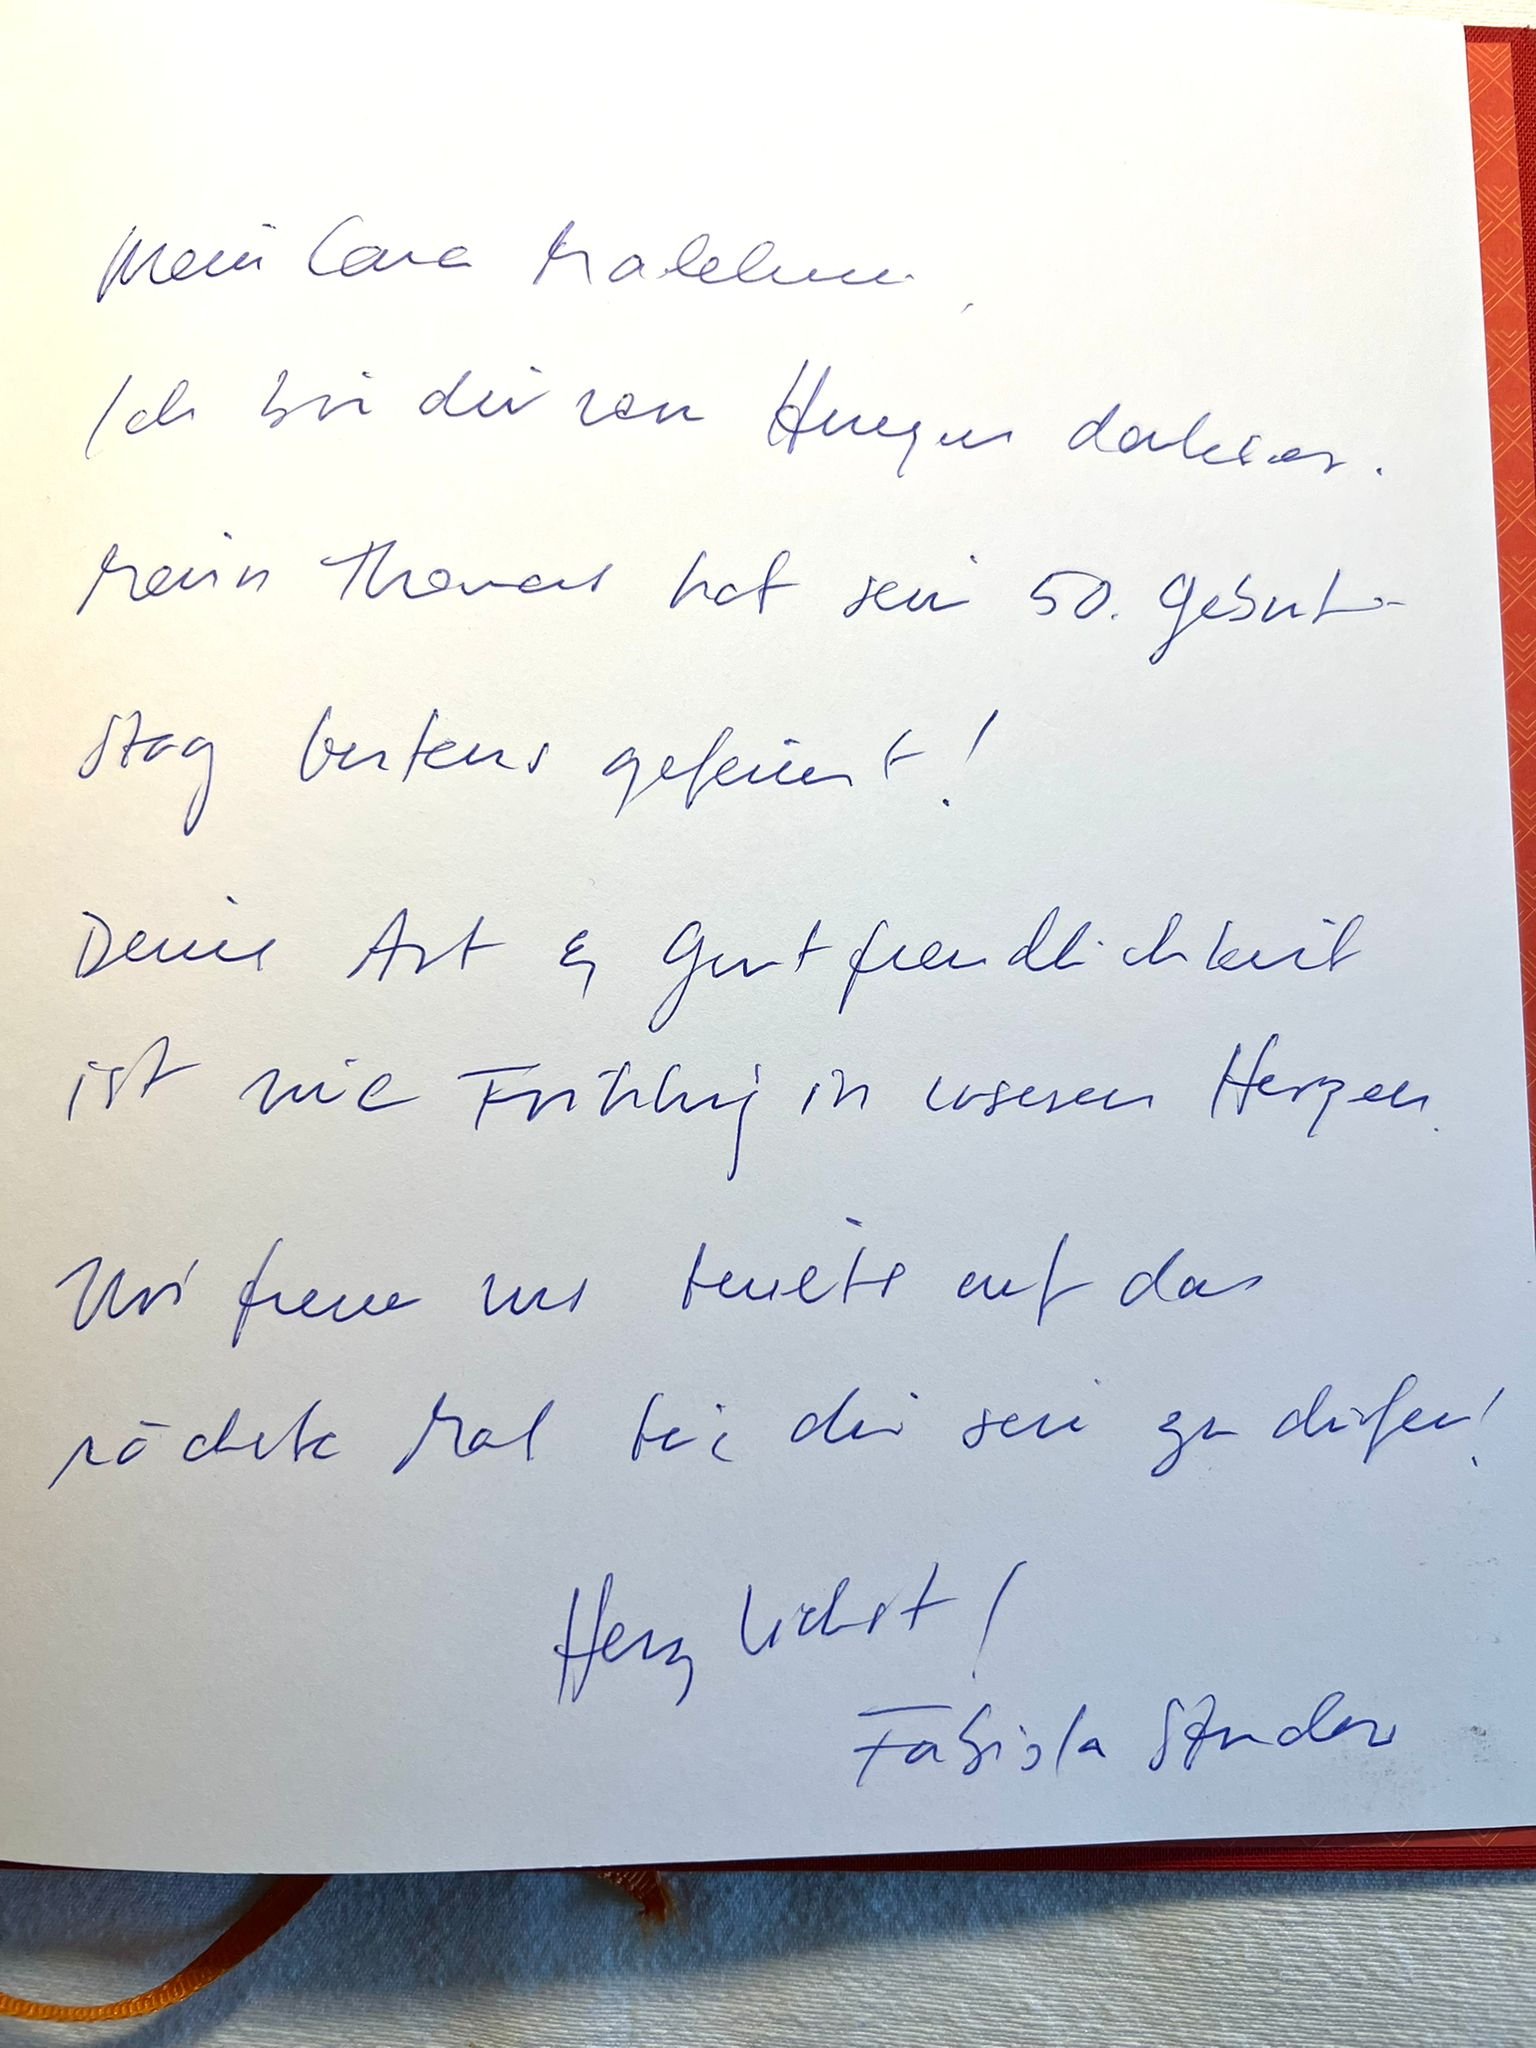 Mein Cara
Ich bin dir von Herzen dankbar.
Mein Thomas hat sein 50. Geburt-
stag bestens gefeiert!
Deine Art & Gastfreundlichkeit
ist wie Frühling in unseren Herzen.
Wir freuen uns bereits auf das
nächste Mal bei dir sein zu dürfen!
Herzlichst!
Fabiola Studer